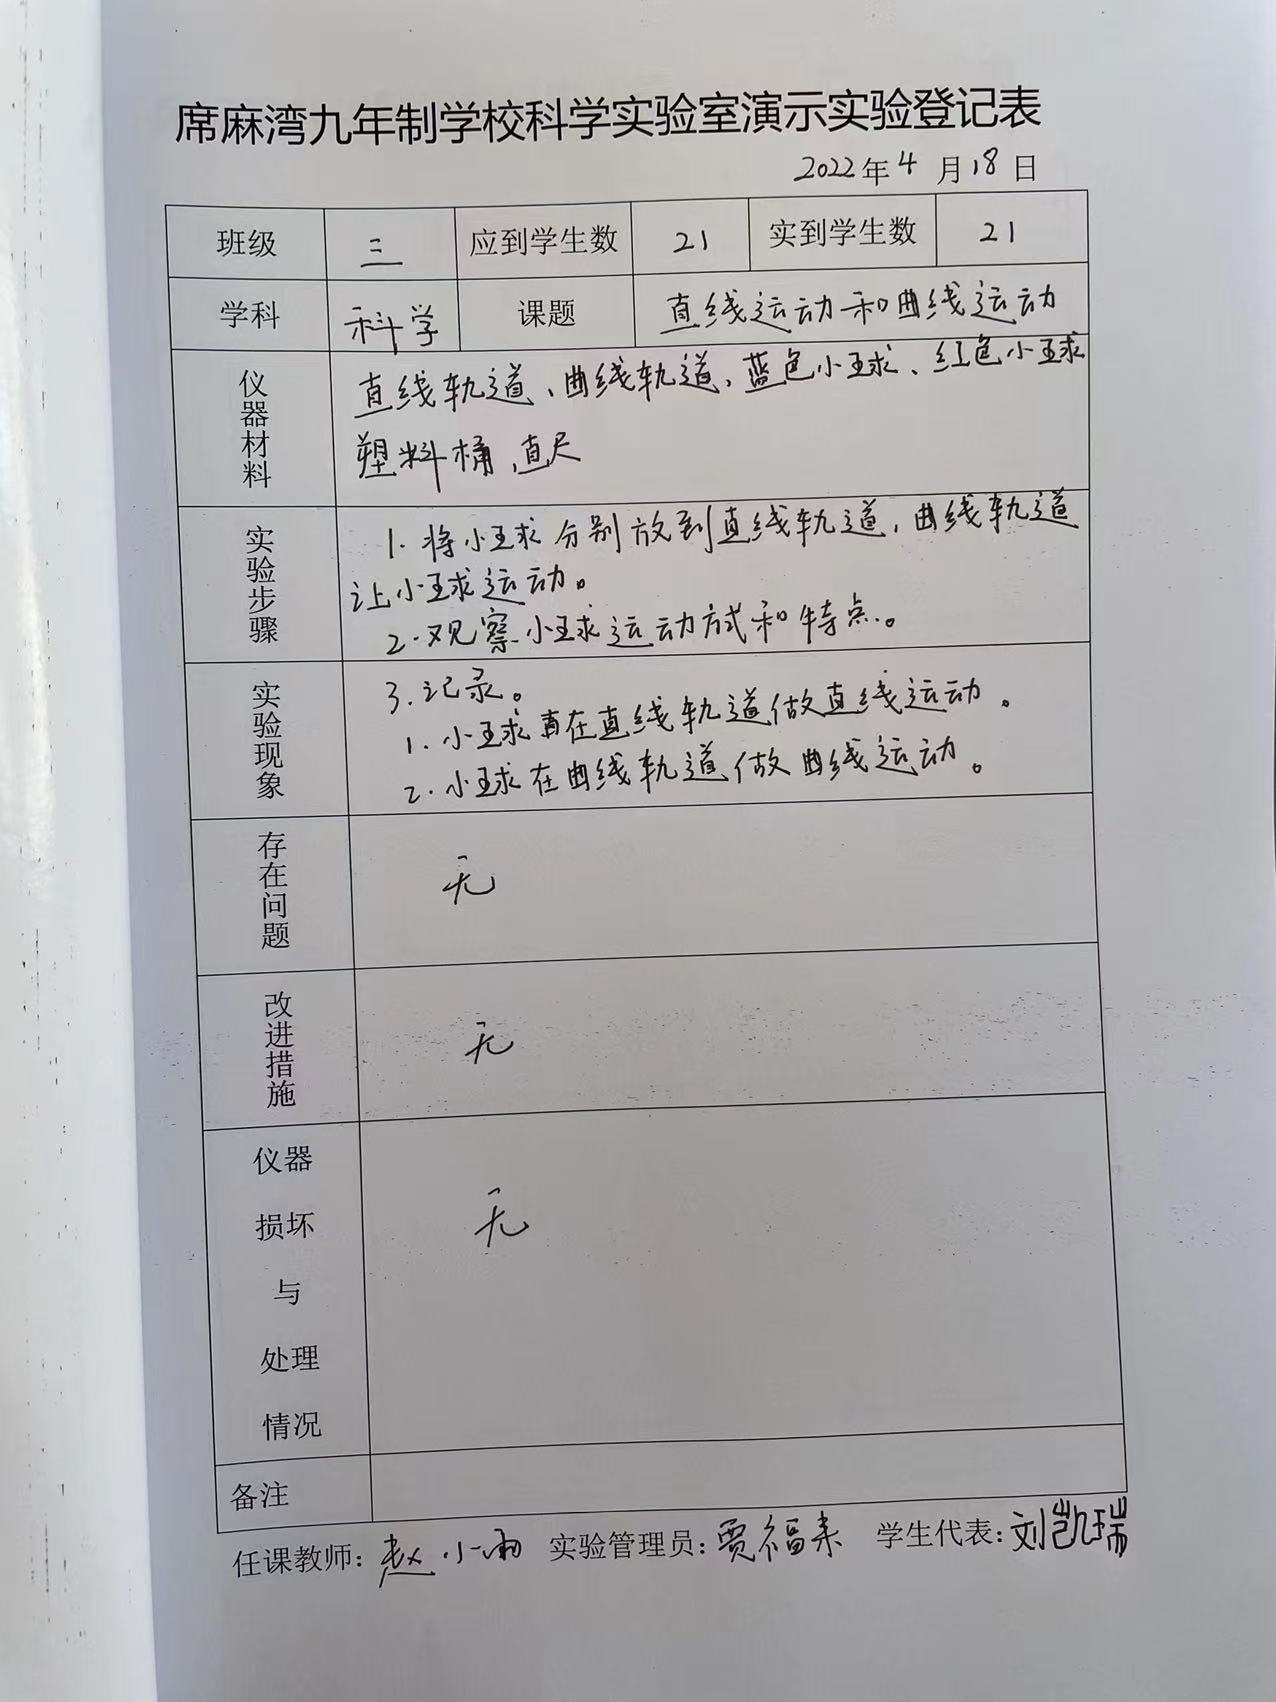 席麻湾九年制学校科学实验室演示实验登记表
2022年4月18日
班级 三 应到学生数 21 实到学生数 21
学科 科学 课题 直线运动和曲线运动
仪器材料 直线轨道、曲线轨道、蓝色小球、红色小球
塑料桶、直尺
实验步骤 1.将小球分别放到直线轨道,曲线轨道
让小球运动。
2.观察小球运动方式和特点。
实验现象 3.记录。
1.小球在直线轨道做直线运动。
2.小球在曲线轨道做曲线运动。
存在问题 无
改进措施 无
仪器
损坏 无
与
处理
情况
备注
任课教师:赵小雨 实验管理员:贾福来 学生代表:刘凯瑞